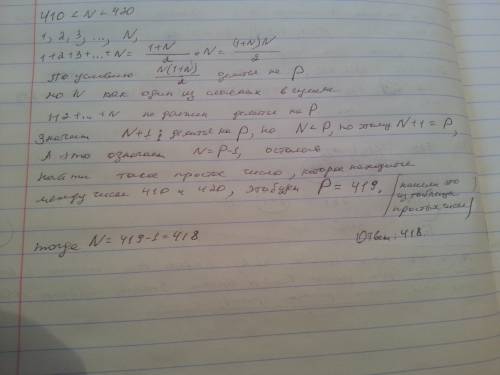 410 < N < 420
1, 2, 3, ..., N,
1+2+3+...+N = (1+N)/2 • N = (1+N)N/2
По условию N(1+N)/2 делится на P
но N как один из слагаемых в сумме
1+2+...+N не должен делится на P
значит N+1 делится на P, но N<P, по этому N+1 = P,
А это означает N=P-1, осталось
найти такое простое число, которое находится
между числ 410 и 420, это будет P = 419, (нашли это
из таблицы
простых чисел)
тогда N = 419-1 = 418
Ответ: 418.